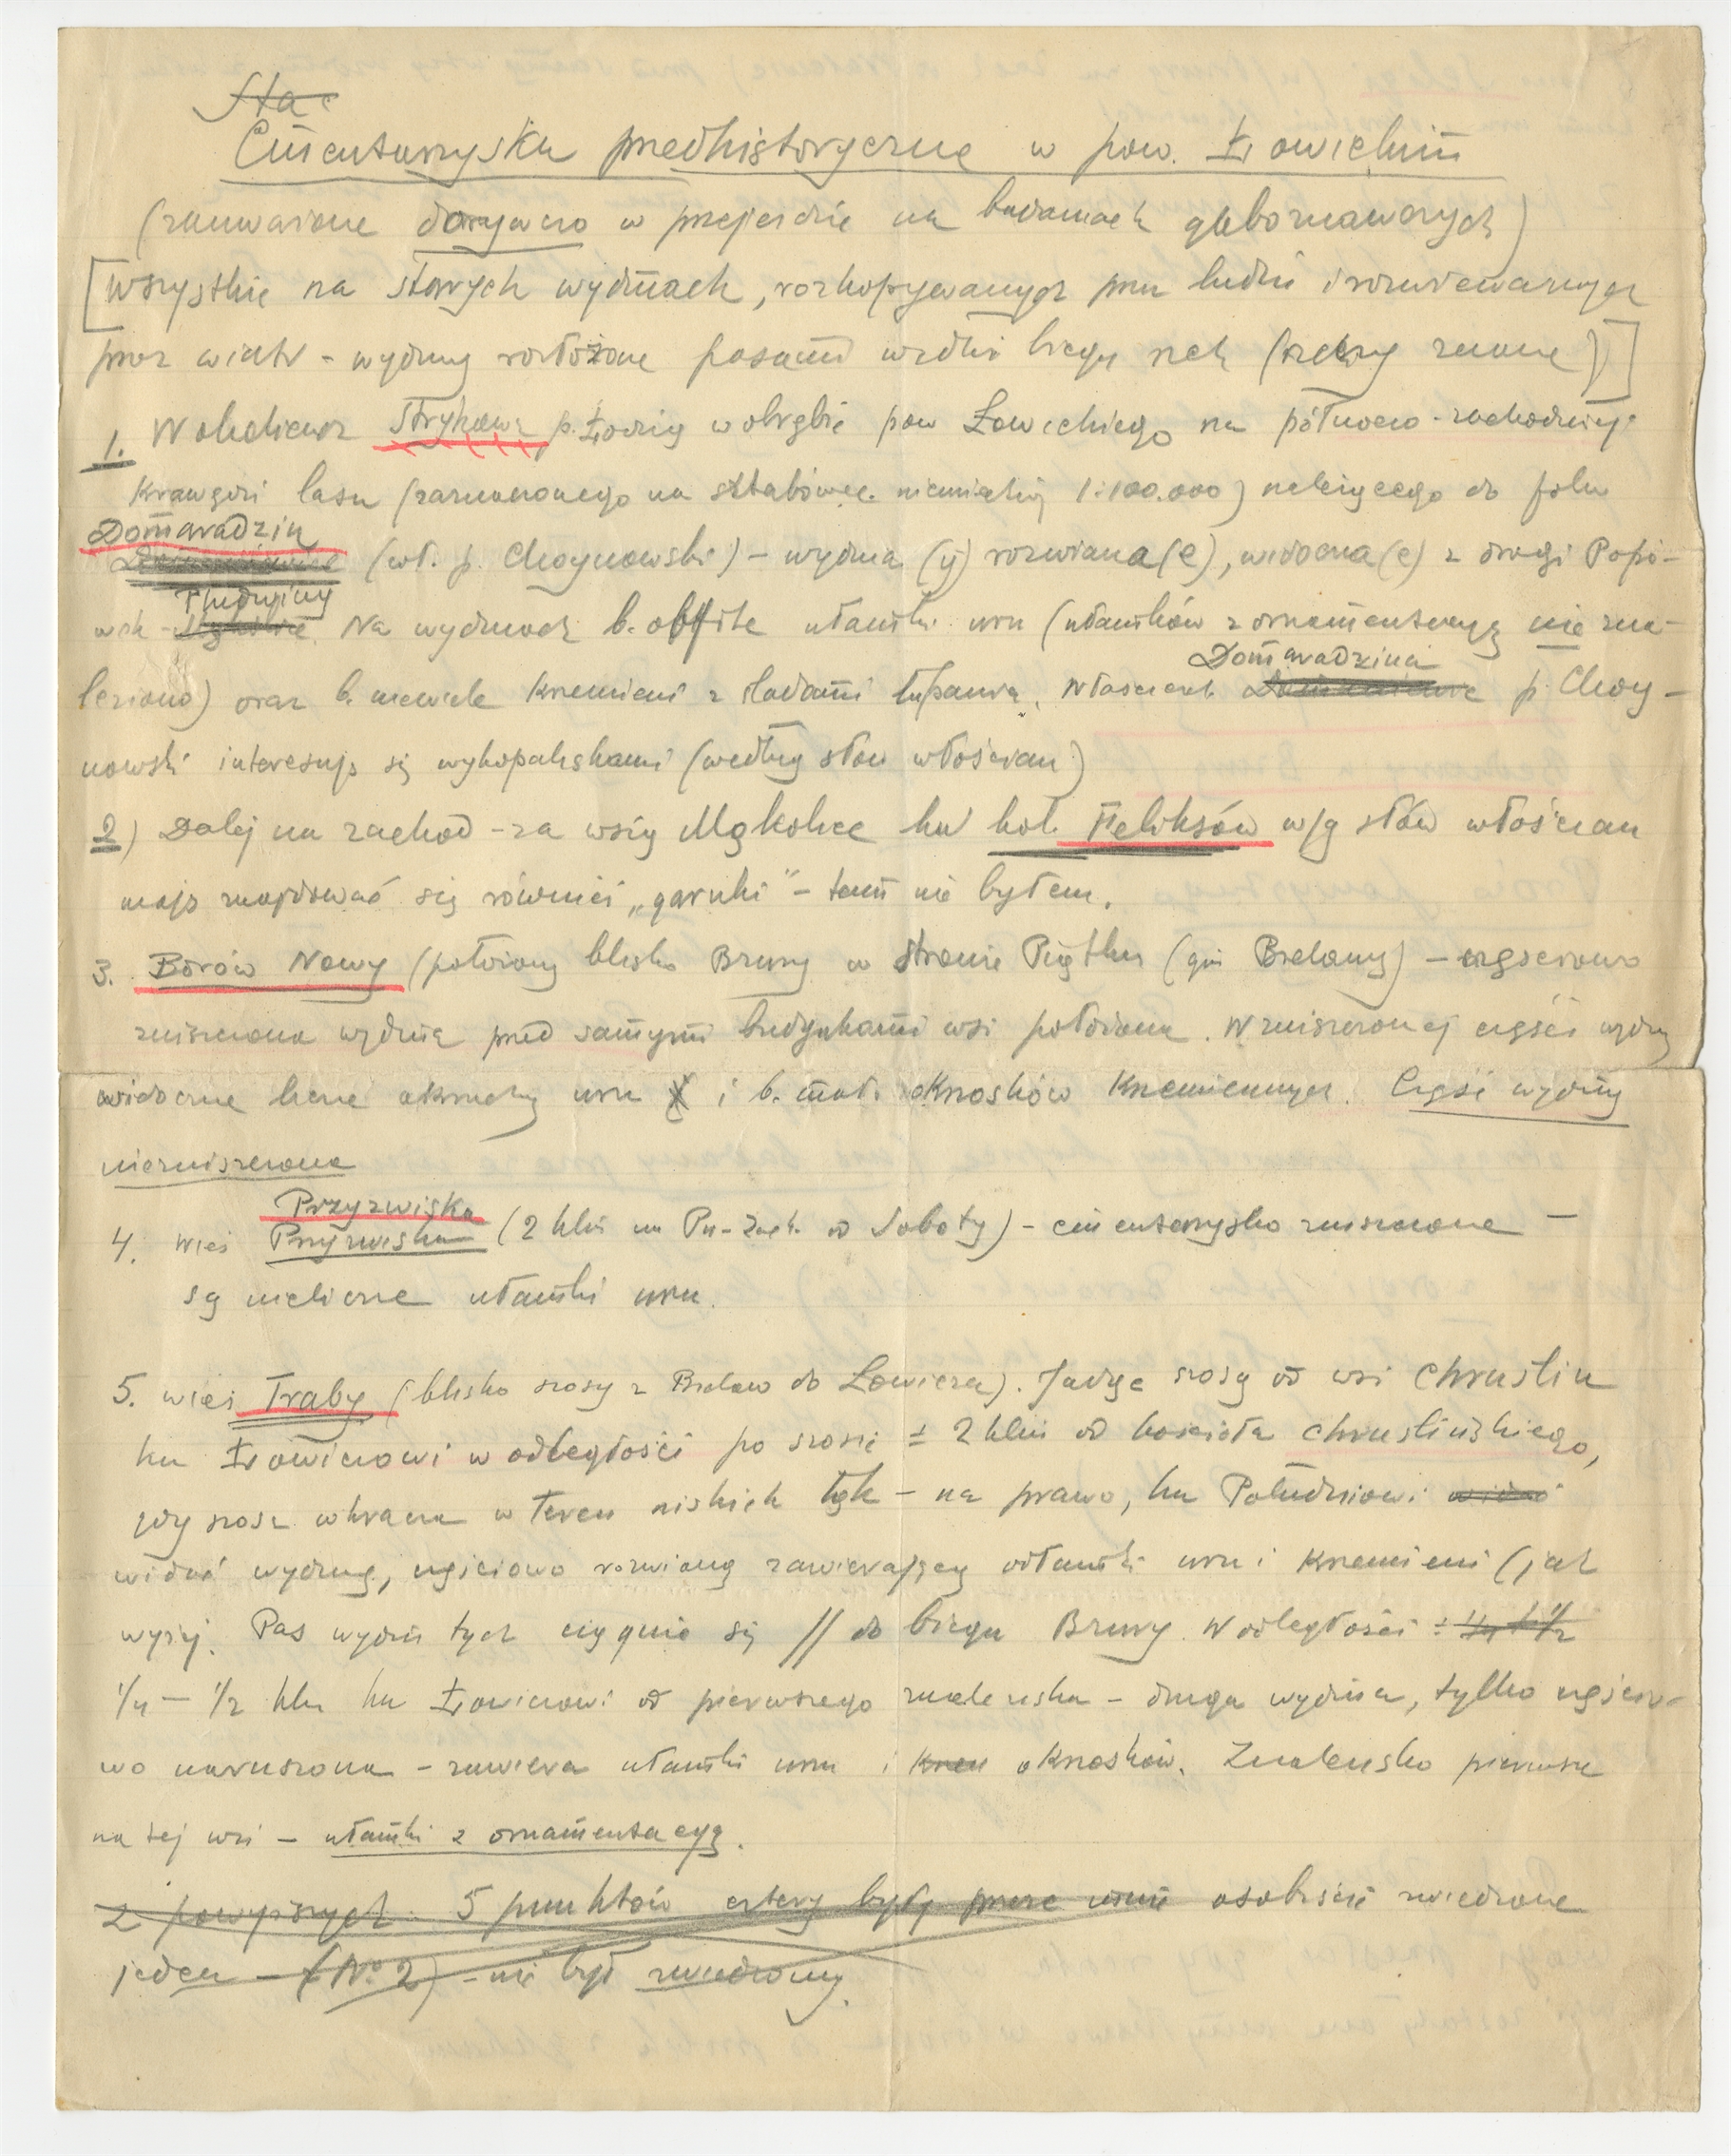 Sta
Cmentarzyska przedhistoryczne w pow. Łowickim
(zauważone dorywczo w przejeździe na badaniach gleboznawczych)
[Wszystkie na starych wydmach, rozkopywanych przez ludzi i rozwiewanych
przez wiatr – wydmy rozłożone pasami wzdłuż biegu rzek
1. W okolicach Strykowa p. Łodzią w obrębie pow Łowickiego na północno-zachodniej
Krawędzi lasu (zaznaczonego na sztabówce niemieckiej 1:100.000) należącego do folw
Domaradzin
(wł. p. Choynowski) – wydma (y) rozwiana(e), widoczna(e) z drogi Popó-
Pludwiny
wek – Na wydmach b. obfite ułamki urn (ułamków z ornamentacją nie zna-
Domaradzina
leziono) oraz b. niewiele Krzemieni z śladami łupania. Właściciel p. Choy-
nowski interesuje się wykopaliskami (według słów włościan)
2) Dalej na zachód – za wsią Mąkolice ku kol. Feliksów w/g słów włościan
mają znajdować się również „garnki” – tam nie byłem.
3. Borów Nowy (położony blisko Bzury w stronie Piątku (gm Bielawy) – częściowo
zniszczona wydma przed samymi budynkami wsi położona. W zniszczonej części wydmy
widoczne liczne okruchy urn i b. mało okrzosków Krzemiennych. Część wydmy
niezniszczona
Przyzwiska
4. Wieś Przyzwiska (2 klm na Pn-Zach. od Soboty) – cmentarzysko zniszczone –
są nieliczne ułamki urn.
5. wieś Traby (blisko szosy z Bielaw do Łowicza). Jadąc szosą od wsi Chruślin
ku Łowiczowi w odległości po szosie ± 2 klm od kościoła chruślińskiego,
gdy szosa wkracza w teren niskich łąk – na prawo, ku Południowi widać
widać wydmę, częściowo rozwianą zawierającą odłamki urn i Krzemieni (jak
wyżej. Pas wydm tych ciągnie się // do biegu Bzury. W odległości ± 1/4 – 1/2
1/4 – 1/2 klm ku Łowiczowi od pierwszego znaleziska – druga wydma, tylko częścio-
wo naruszona – zawiera ułamki urn i Krzem okrzosków. Znalezisko pierwsze
na tej wsi – ułamki z ornamentacją.
Z powyższych 5 punktów cztery były przeze mnie osobiście zwiedzone
jeden – (№ 2) – nie był zwiedzony.